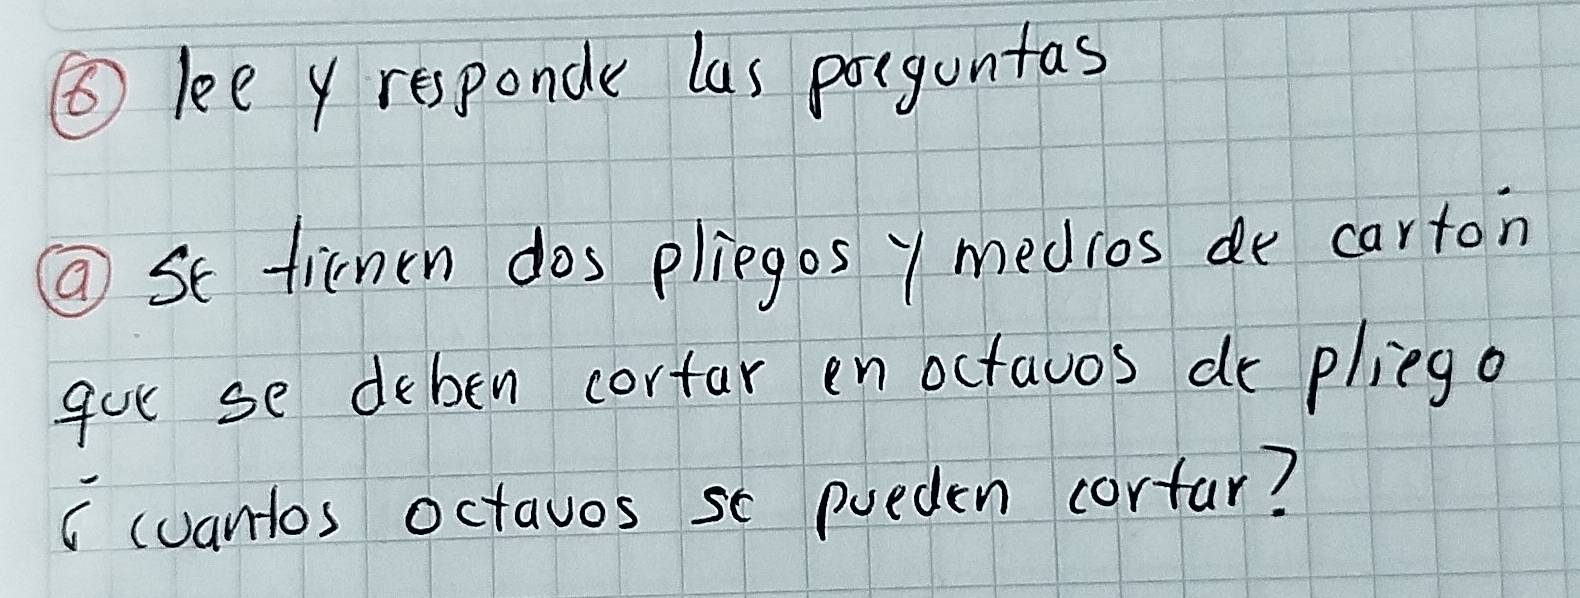 ⑥ lee y responde las preguntas
ⓐ se tienen dos pliegos y medios de cartón
que se deben cortar en octavos de pliego
¿cuantos octavos se pueden cortar?